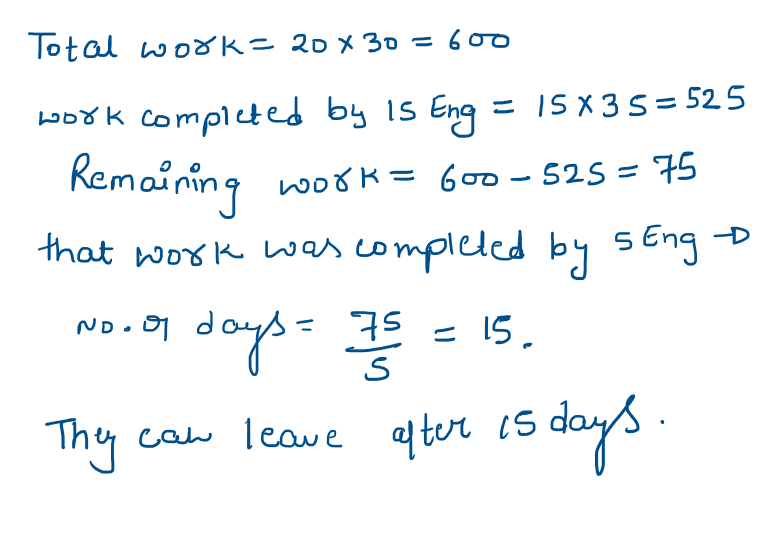 Total work = 20 x 30 = 600
work completed by 15 Eng = 15 x 35 = 525
Remaining work = 600 - 525 = 75
that work was completed by 5 Eng →
No. of days = 75/5 = 15.
They can leave after 15 days.